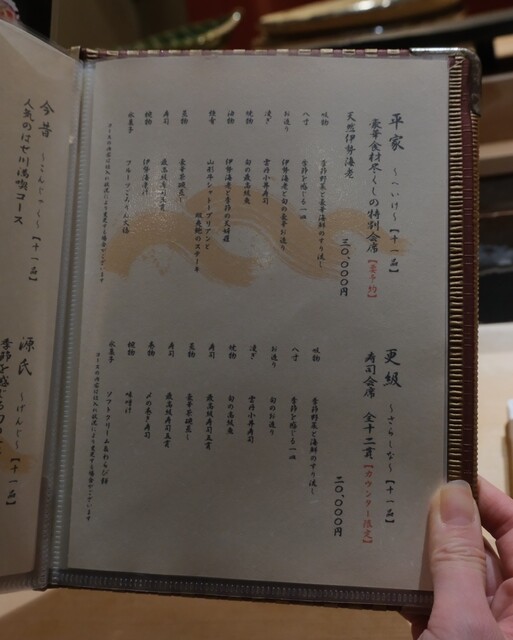 平家 ～へいけ～【十一品】
豪華食材尽くしの特別会席【要予約】
天然伊勢海老
三〇,〇〇〇円
吸物 季節野菜と豪華海鮮のすり流し
八寸 季節を感じる一皿
お造り 伊勢海老と旬の豪華お造り
凌ぎ 雲丹小丼寿司
焼物 旬の高級魚
油物 伊勢海老と季節の天婦羅
強肴 山形牛シャトーブリアンと
蝦夷鮑のステーキ
蒸物 豪華茶碗蒸し
寿司 最高級寿司五貫
椀物 伊勢海老汁
水菓子 フルーツとわらび餅
更級 ～さらしな～【十一品】
寿司会席 全十二貫【カウンター限定】
二〇,〇〇〇円
吸物 季節野菜と海鮮のすり流し
八寸 季節を感じる一皿
お造り 旬のお造り
凌ぎ 雲丹小丼寿司
焼物 旬の高級魚
寿司 最高級寿司五貫
蒸物 豪華茶碗蒸し
寿司 最高級寿司五貫
巻物 〆の巻き寿司
椀物 味噌汁
水菓子 ソフトクリーム&わらび餅
今昔 ～こんじゃく～【十一品】
人気のはせ川満喫コース
源氏 ～げんじ～【十一品】